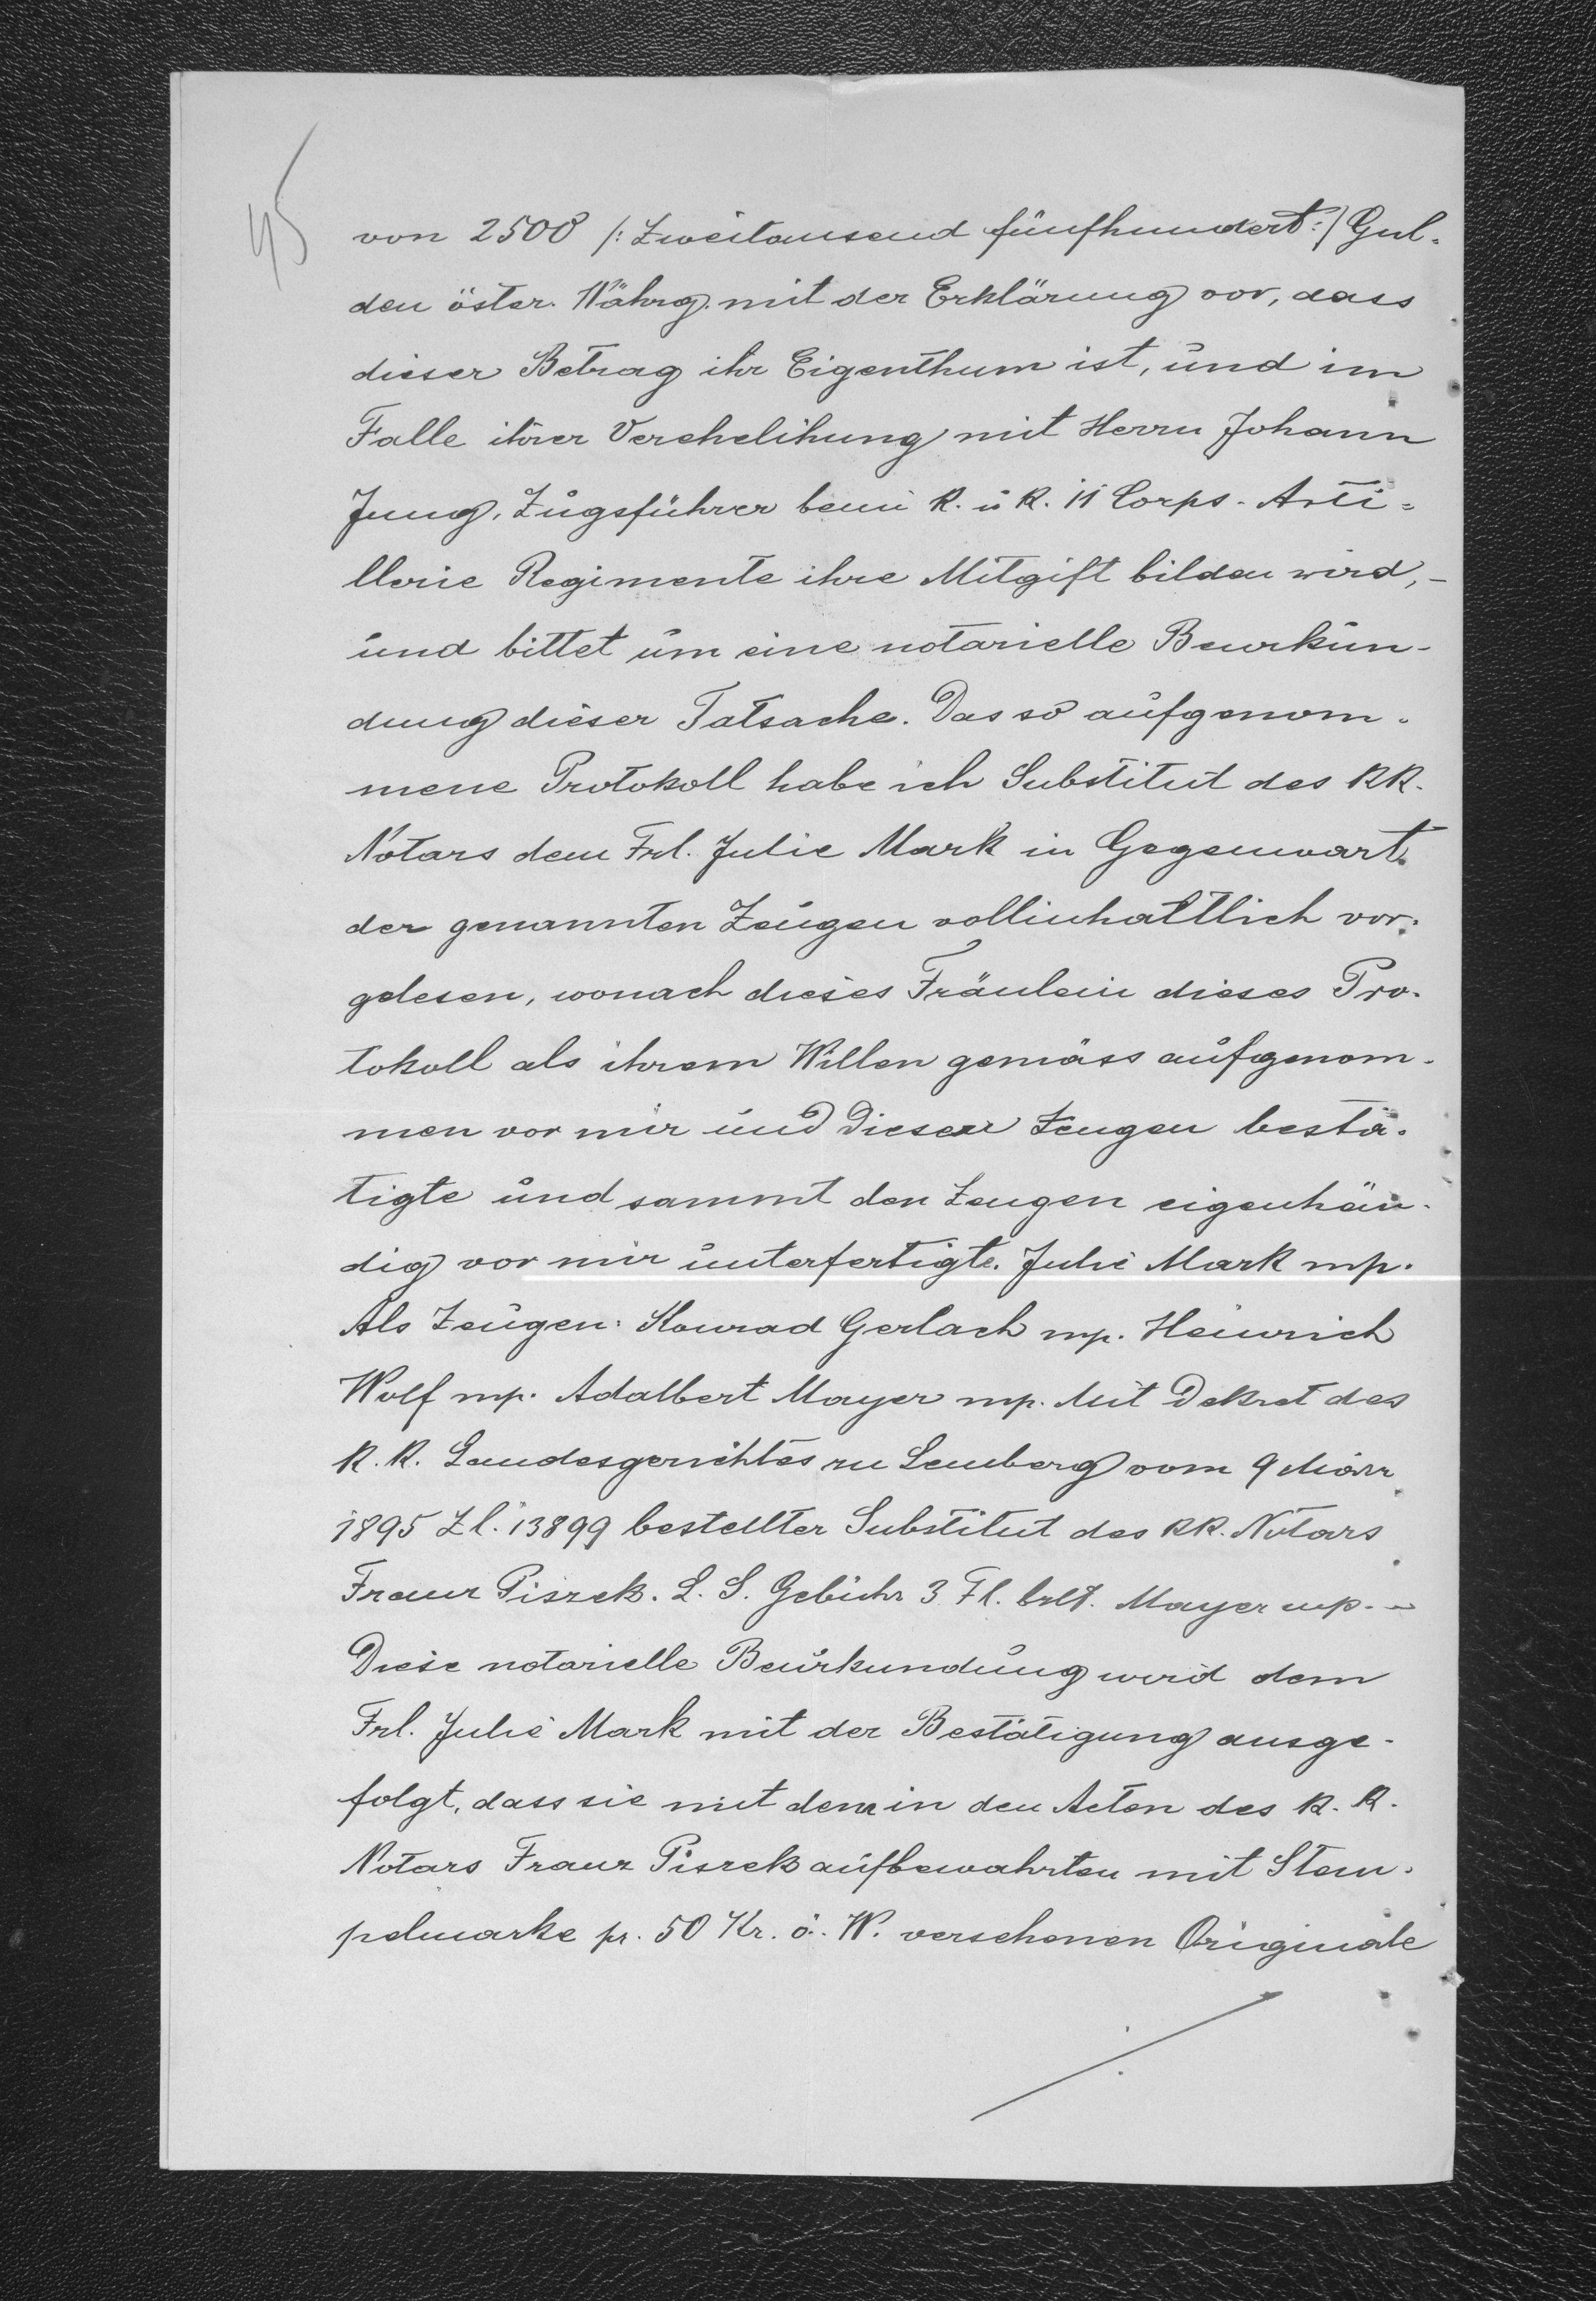 95
von 2500 /: Zweitausend fünfhundert :/ Gul-
den öster. Währg. mit der Erklärung vor, dass
dieser Betrag ihr Eigenthum ist, und im
Falle ihrer Verehelihung mit Herrn Johann
Jung, Zugsführer beim K. u K. 11 Corps-Arti=
llerie Regimente ihre Mitgift bilden wird, –
und bittet um eine notarielle Beurkun-
dung dieser Tatsache. Das so aufgenom-
mene Protokoll habe ich Substitut des KK.
Notars dem Frl. Julie Mark in Gegenwart
der genannten Zeugen vollinhaltlich vor-
gelesen, wonach dieses Fräulein dieses Pro-
tokoll als ihrem Willen gemäss aufgenom-
men vor mir und diesen Zeugen bestä-
tigte und sammt den Zeugen eigenhän-
dig vor mir unterfertigte. Julie Mark mp.
Als Zeugen: Konrad Gerlach mp. Heinrich
Wolf mp. Adalbert Mayer mp. Mit Dekret des
K. K. Landesgerichtes zu Lemberg vom 9 März
1895 Zl. 13899 bestellter Substitut des KK. Notars
Franz Piszek. L. S. Gebühr 3 Fl. Mayer mp. –
Diese notarielle Beurkundung wird dem
Frl. Julie Mark mit der Bestätigung ausge-
folgt, dass sie mit dem in den Acten des K. K.
Notars Franz Piszek aufbewahrten mit Stem-
pelmarke pr. 50 Kr. ö. W. versehenen Originale